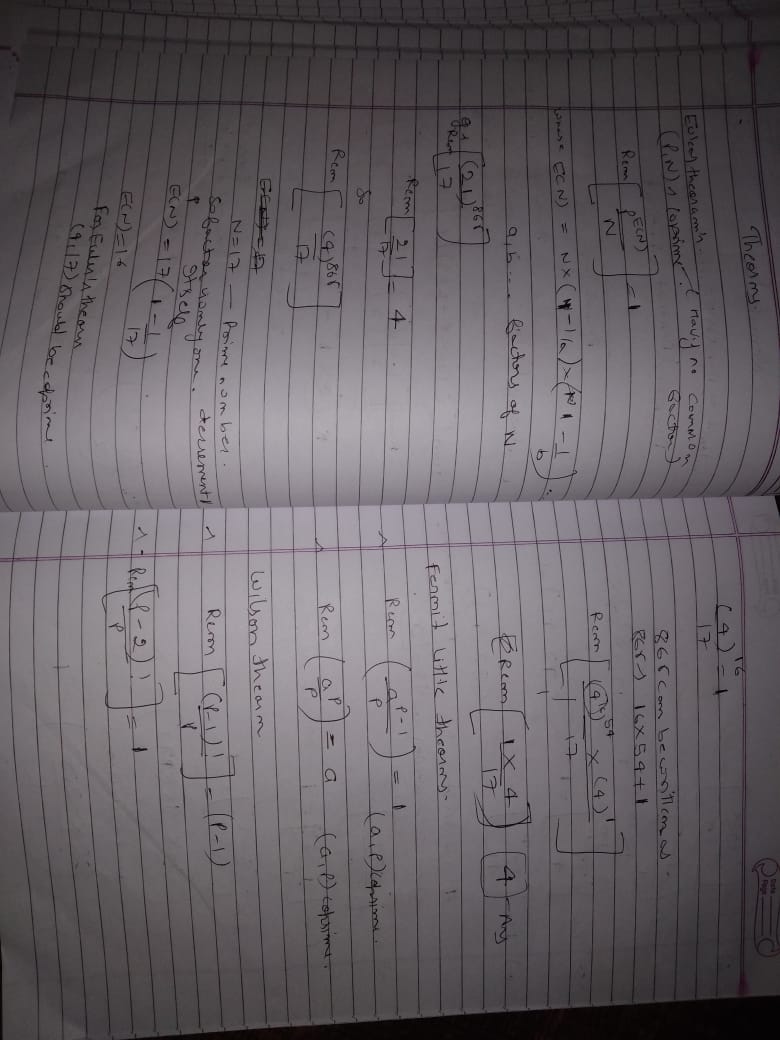 Theorms.
Euler theoram :-
(P,N) → coprime. (Having no common factor)
Rem [P^E(N) / N] = 1
where E(N) = N × (1 - 1/a) × (1 - 1/b) .
a, b ... factors of N.
Rem [(21)^865 / 17]
Rem [21 / 17] = 4
So
Rem [(4)^865 / 17]
N = 17 — Prime number.
So factor is only one.
itself
E(N) = 17 (1 - 1/17)
E(N) = 16
For Euler's theorm
(4, 17) should be coprime
Date
Page
(4)^16 / 17 = 1
865 can be written as.
865 → 16 × 54 + 1
Rem [(4)^16^54 × (4)^1 / 17]
Rem [1 × 4 / 17] 4 - Ans
Fermit little theorms.
→ Rem (a^p-1 / p) = 1 (a, p) coprime.
→ Rem (a^p / p) = a (a, p) coprime.
Wilson theorm
→ Rem [(P-1)! / P] = (P-1)
→ Rem [(P-2)! / P] = 1